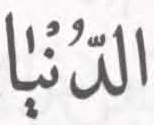 الدُّنْيَا